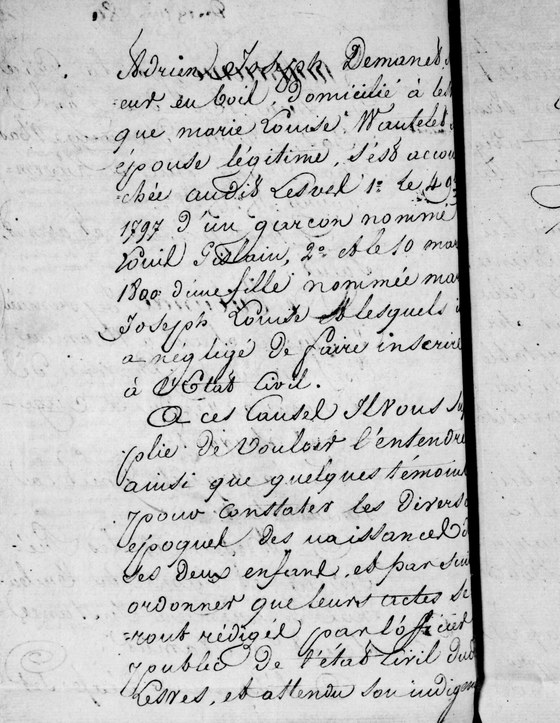 Adrien Joseph Demanet
eur en boil, domicilié à les
que marie Louise Wautelet
épouse légitime, s'est accou
chée audit Lesvel 1.º le 4 9
1797 d'un garçon nommé
Louil Gislain, 2.º et le 10 mar
1800 d'une fille nommée mar
Joseph Louise lesquels
a négligé de faire inscrire
à l'Etat Civil.
A ces Causel Il vous su
plie de vouloir l'entendre
ainsi que quelques témoins
pour constater les diverse
epoquel des naissancel d
ses deux enfant, et par sui
ordonner que leurs actes se
=ront rédigél par l'officier
public de l'état civil dud
Lesves, et attendu son indigen